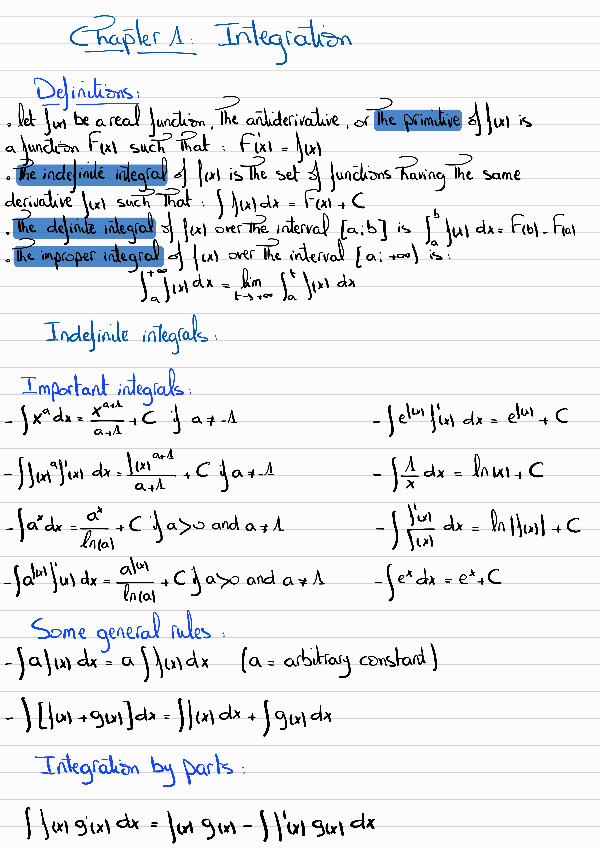 Chapter 1: Integration
Definitions:
. let f(x) be a real function, The antiderivative, or The primitive of f(x) is
a function F(x) such that : F'(x) = f(x)
. The indefinite integral of f(x) is the set of functions having the same
derivative f(x) such that : ∫ f(x) dx = F(x) + C
. The definite integral of f(x) over the interval [a;b] is ∫_a^b f(x) dx = F(b) - F(a)
. The improper integral of f(x) over the interval [a; +∞) is:
∫_a^{+∞} f(x) dx = lim_{t→+∞} ∫_a^t f(x) dx
Indefinite integrals:
Important integrals:
- ∫ x^a dx = x^{a+1}/(a+1) + C if a ≠ -1
- ∫ e^{f(x)} f'(x) dx = e^{f(x)} + C
- ∫ f(x)^a f'(x) dx = f(x)^{a+1}/(a+1) + C if a ≠ -1
- ∫ 1/x dx = ln|x| + C
- ∫ a^x dx = a^x/ln(a) + C if a>0 and a ≠ 1
- ∫ f'(x)/f(x) dx = ln|f(x)| + C
- ∫ a^{f(x)} f'(x) dx = a^{f(x)}/ln(a) + C if a>0 and a ≠ 1
- ∫ e^x dx = e^x + C
Some general rules :
- ∫ a f(x) dx = a ∫ f(x) dx (a = arbitrary constant)
- ∫ [f(x) + g(x)] dx = ∫ f(x) dx + ∫ g(x) dx
Integration by parts :
∫ f(x) g'(x) dx = f(x) g(x) - ∫ f'(x) g(x) dx